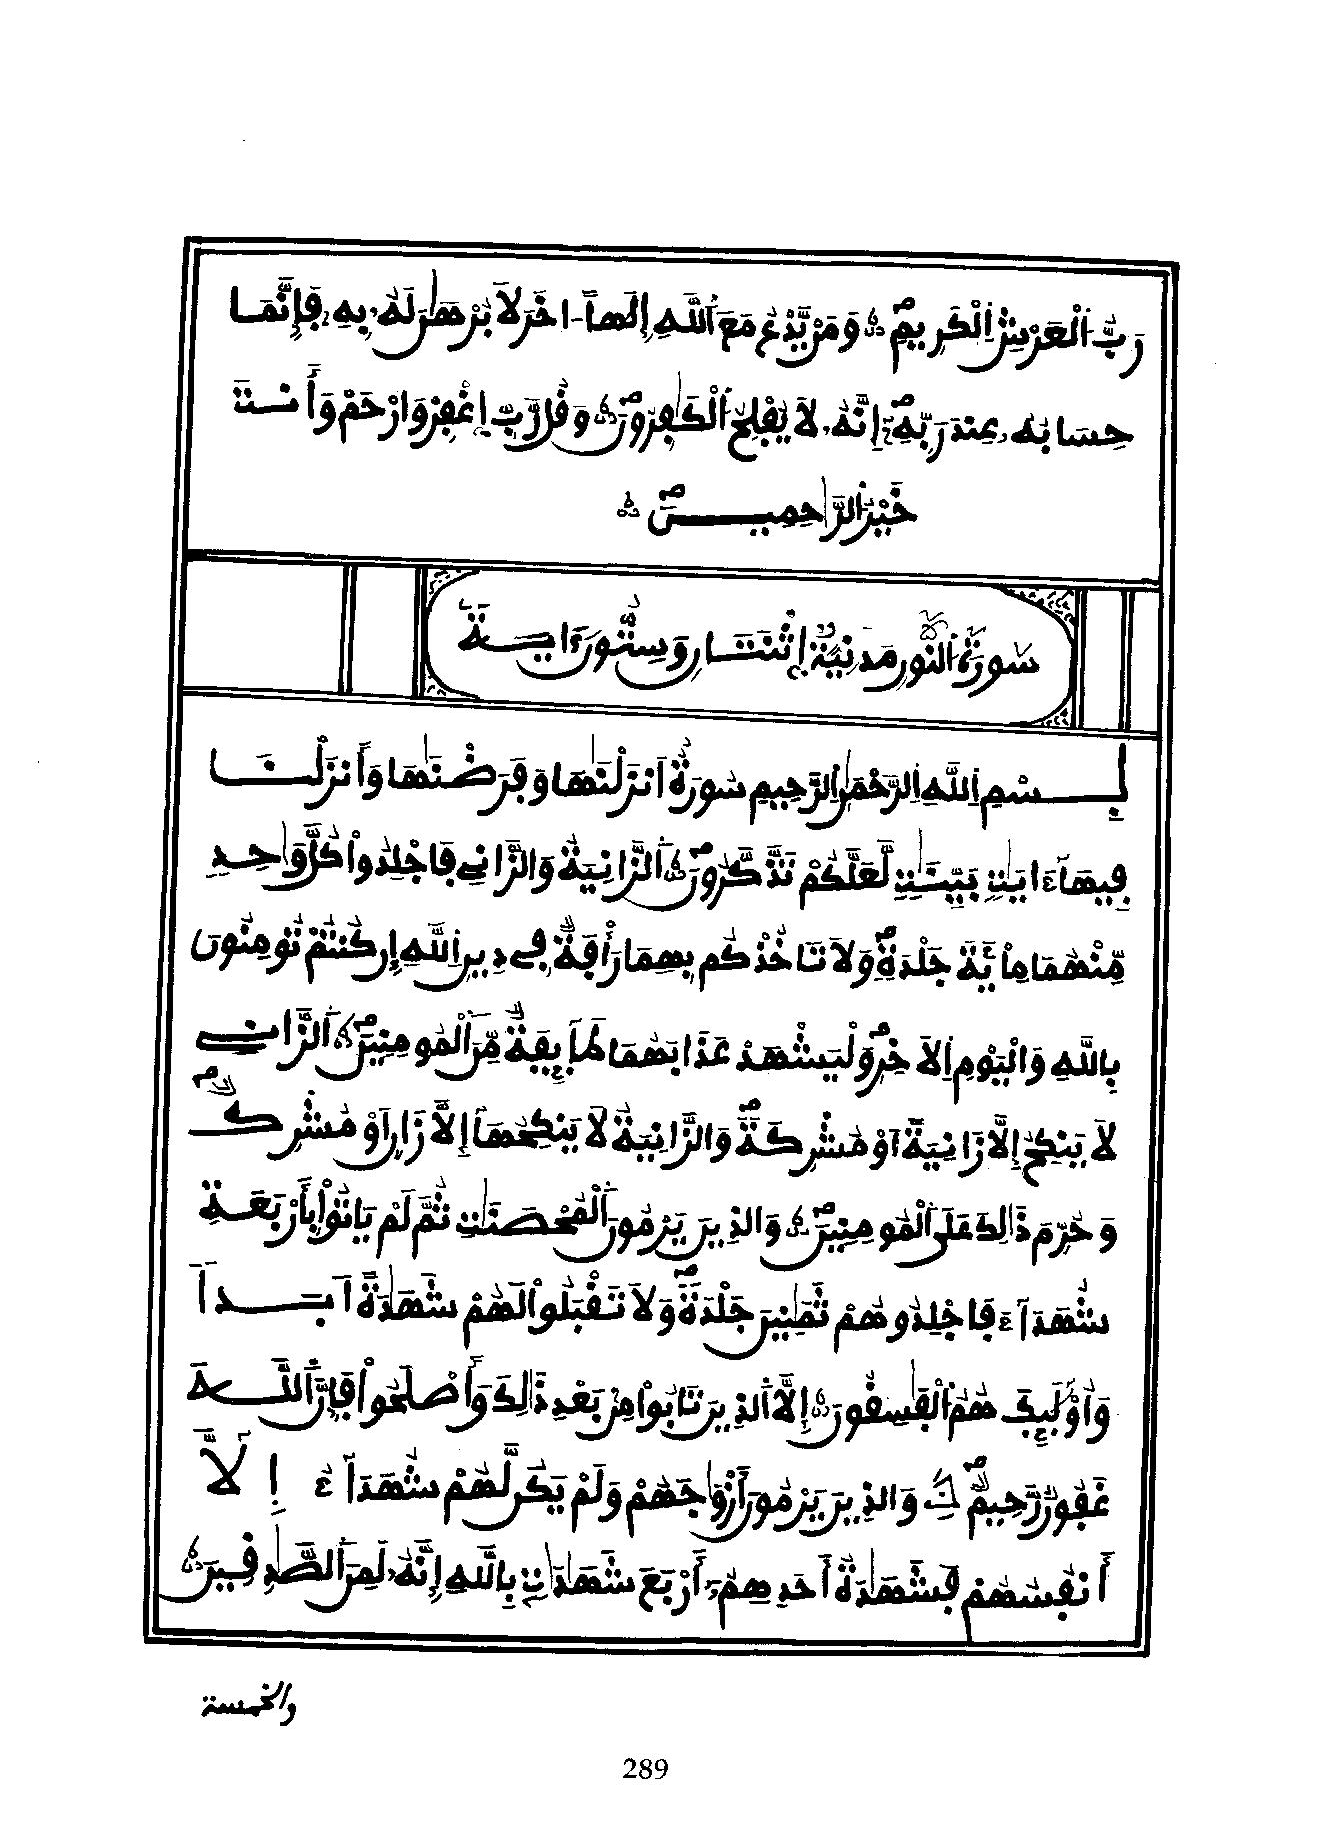 رَبُّ اَ۬لْعَرْشِ اِ۬لْكَرِيمِۖ ۝ وَمَنْ يَّدْعُ مَعَ اَ۬للَّهِ إِلَٰهاً ـاخَرَ لَا بُرْهَٰنَ لَهُۥ بِهِۦ فَإِنَّمَا
حِسَابُهُۥ عِندَ رَبِّهِۦٓۖ إِنَّهُۥ لَا يُفْلِحُ اُ۬لْكَٰفِرُونَۖ ۝ وَقُل رَّبِّ اِ۪غْفِرْ وَارْحَمْ وَأَنتَ
خَيْرُ اُ۬لرَّٰحِمِينَۖ ۝
سُورَةُ اُ۬لنُّورِ مَدَنِيَّةٌ إِثْنَتَانِ وَسِتُّونَ ءَايَةً
بِسْمِ اِ۬للَّهِ اِ۬لرَّحْمَٰنِ اِ۬لرَّحِيمِ سُورَةٌ اَنزَلْنَٰهَا وَفَرَضْنَٰهَا وَأَنزَلْنَا
فِيهَآ ءَايَٰتِۢ بَيِّنَٰتٍ لَّعَلَّكُمْ تَذَّكَّرُونَۖ ۝ اَ۬لزَّانِيَةُ وَالزَّانِے فَاجْلِدُواْ كُلَّ وَٰحِدٍ
مِّنْهُمَا مِاْئَةَ جَلْدَةٍۖ وَلَا تَاخُذْكُم بِهِمَا رَأْفَةٌ فِے دِينِ اِ۬للَّهِ إِن كُنتُمْ تُومِنُونَ
بِاللَّهِ وَالْيَوْمِ اِ۬لَاخِرِۖ وَلْيَشْهَدْ عَذَابَهُمَا طَآئِفَةٌ مِّنَ اَ۬لْمُومِنِينَۖ ۝ اَ۬لزَّانِے
لَا يَنكِحُ إِلَّا زَانِيَةً اَوْ مُشْرِكَةًۖ وَالزَّانِيَةُ لَا يَنكِحُهَآ إِلَّا زَانٍ اَوْ مُشْرِكٌۖ
وَحُرِّمَ ذَٰلِكَ عَلَى اَ۬لْمُومِنِينَۖ ۝ وَالذِينَ يَرْمُونَ اَ۬لْمُحْصَنَٰتِ ثُمَّ لَمْ يَاتُواْ بِأَرْبَعَةِ
شُهَدَآءَ فَاجْلِدُوهُمْ ثَمَٰنِينَ جَلْدَةًۖ وَلَا تَقْبَلُواْ لَهُمْ شَهَٰدَةً اَبَداً
وَأُوْلَٰٓئِكَ هُمُ اُ۬لْفَٰسِقُونَ ۝ إِلَّا اَ۬لذِينَ تَابُواْ مِنۢ بَعْدِ ذَٰلِكَ وَأَصْلَحُواْ فَإِنَّ اَ۬للَّهَ
غَفُورٌ رَّحِيمٌۖ ۝ وَالذِينَ يَرْمُونَ أَزْوَٰجَهُمْ وَلَمْ يَكُن لَّهُمْ شُهَدَآءُ اِ۪لَّآ
أَنفُسُهُمْ فَشَهَٰدَةُ أَحَدِهِمُۥٓ أَرْبَعَ شَهَٰدَٰتِۢ بِاللَّهِ إِنَّهُۥ لَمِنَ اَ۬لصَّٰدِقِينَ ۝
والخمسة
289